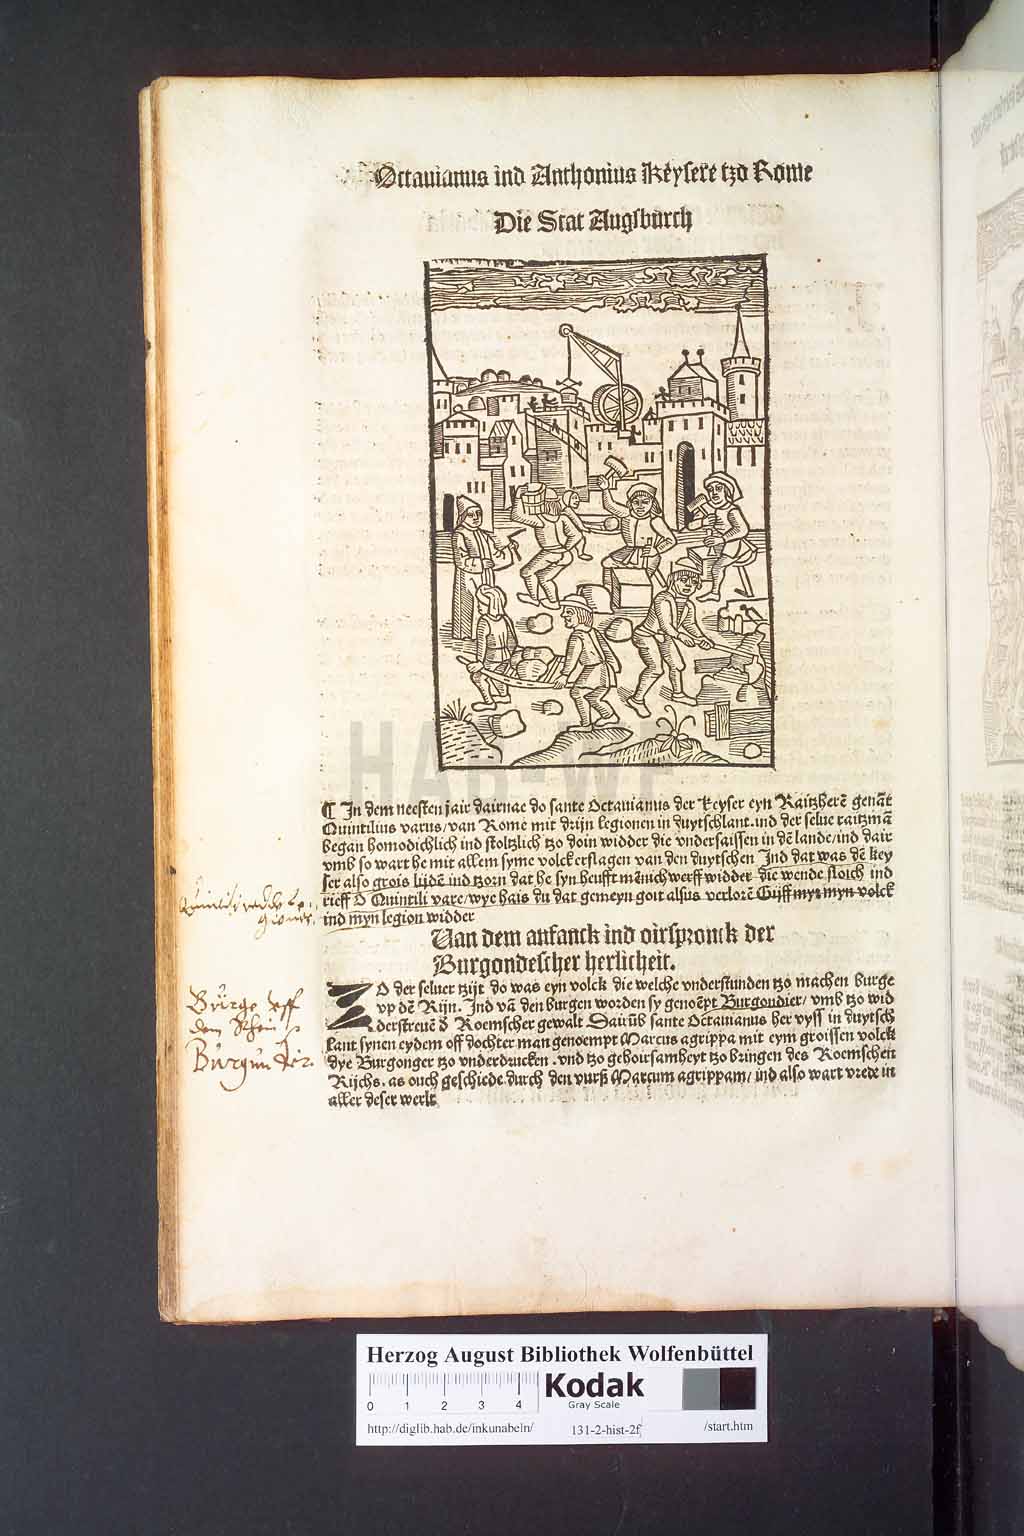 Octauianus ind Anthonius Keysere tzo Rome
Die Stat Augsburch
¶ In dem neesten jair dairnae do sante Octauianus der keyser eyn Raitzherē genāt
Quintilius varus/van Rome mit drijn legionen in duytschlant.ind der selue raitzmā
began homodichlich ind stoltzlich tzo doin widder die vndersaissen in dē lande/ind dair
vmb so wart he mit allem syme volck erslagen van den duytschen Ind dat was dē key
ser also grois lijdē ind tzorn dat he syn heufft mēnichwerff widder die wende stoich ind
rieff O Quintili vare/wye hais du dat gemeyn goit alsus verlorē Gijff myr myn volck
ind myn legion widder
Uan dem anfanck ind oirspronck der
Burgondescher herlicheit.
ZO der seluer tzijt do was eyn volck die welche vnderstunden tzo machen burge
vp dē Rijn. Ind vā den burgen worden sy genoēpt Burgondier/ vmb tzo wid
derstreuē d̄ Roemscher gewalt Dairūb sante Octauianus her vyss in duytsch
lant synen eydem off dochter man genoempt Marcus agrippa mit eym groissen volck
dye Burgonger tzo vnderdrucken .vnd tzo gehoirsamheyt tzo bringen des Roemschen
Rijchs. as ouch geschiede durch den vurß Marcum agrippam/ ind also wart vrede in
aller deser werlt
Burge vff
dem Rhein
Burgundier.
HAB-WF
Herzog August Bibliothek Wolfenbüttel
0 1 2 3 4
Kodak
Gray Scale
http://diglib.hab.de/inkunabeln/ 131-2-hist-2f /start.htm